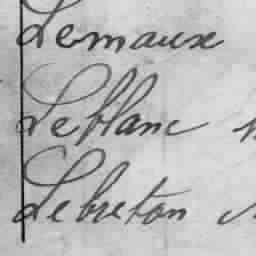 Lemaux
Leblanc
Lebreton